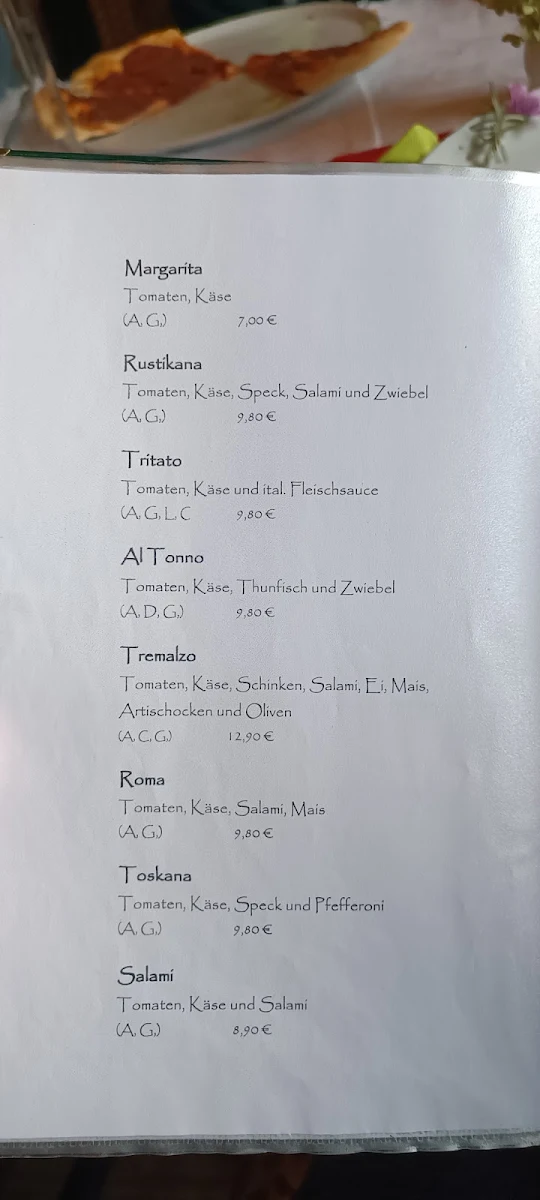 Margarita
Tomaten, Käse
(A, G,) 7,00 €
Rustikana
Tomaten, Käse, Speck, Salami und Zwiebel
(A, G,) 9,80 €
Tritato
Tomaten, Käse und ital. Fleischsauce
(A, G, L, C 9,80 €
Al Tonno
Tomaten, Käse, Thunfisch und Zwiebel
(A, D, G,) 9,80 €
Tremalzo
Tomaten, Käse, Schinken, Salami, Ei, Mais,
Artischocken und Oliven
(A, C, G,) 12,90 €
Roma
Tomaten, Käse, Salami, Mais
(A, G,) 9,80 €
Toskana
Tomaten, Käse, Speck und Pfefferoni
(A, G,) 9,80 €
Salami
Tomaten, Käse und Salami
(A, G,) 8,90 €